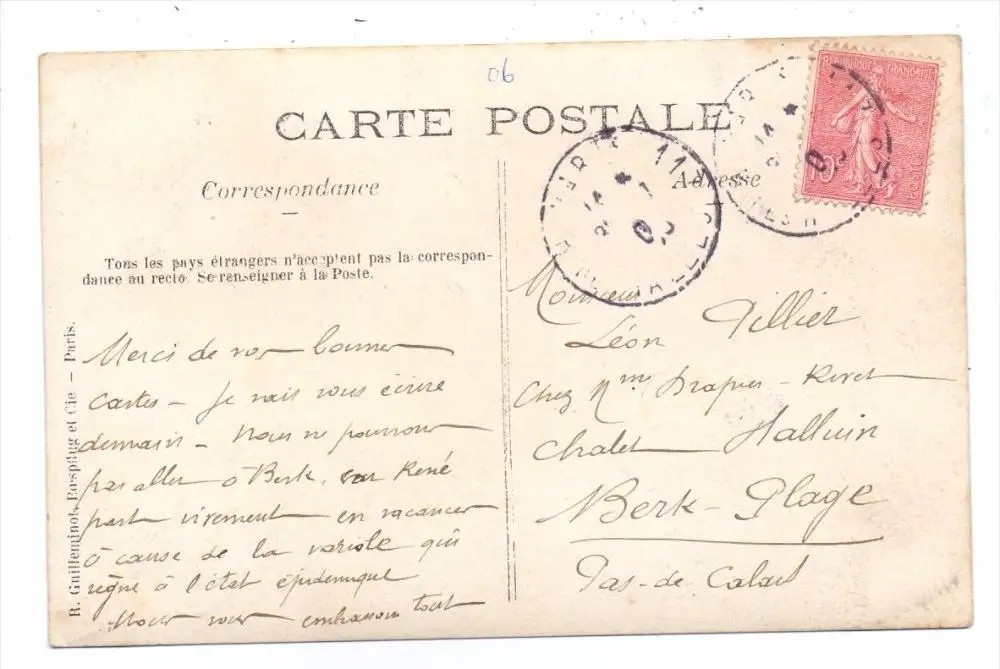 06
CARTE POSTALE
Correspondance
Adresse
Tous les pays étrangers n'acceptent pas la correspon-
dance au recto. Se renseigner à la Poste.
R. Guilleminot, Bœspflug et Cie — Paris.
Merci de vos bonnes
cartes — Je vais vous écrire
demain — Nous ne pourrons
pas aller à Berk, car René
part vivement en vacances
à cause de la variole qui
règne à l'état épidémique
Nous vous embrassons tout
Monsieur
Léon Tillier
Chez Mme Drapier - Rivet
Chalet Halluin
Berk-Plage
Pas-de-Calais
REPUBLIQUE FRANÇAISE
10c
PARIS 11
14